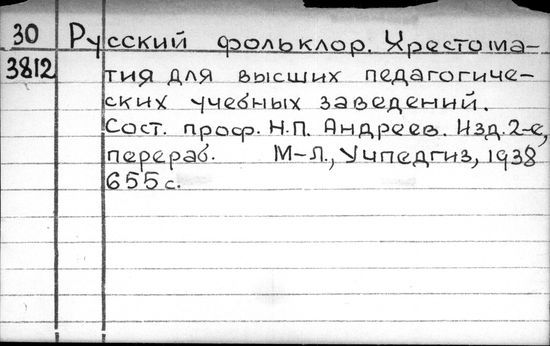 30 Русский фольклор. Хрестома-
3812 тия для высших педагогиче-
ских учебных заведений.
Сост. проф. Н.П. Андреев. Изд. 2-е,
перераб. М-Л., Учпедгиз, 1938
655 с.